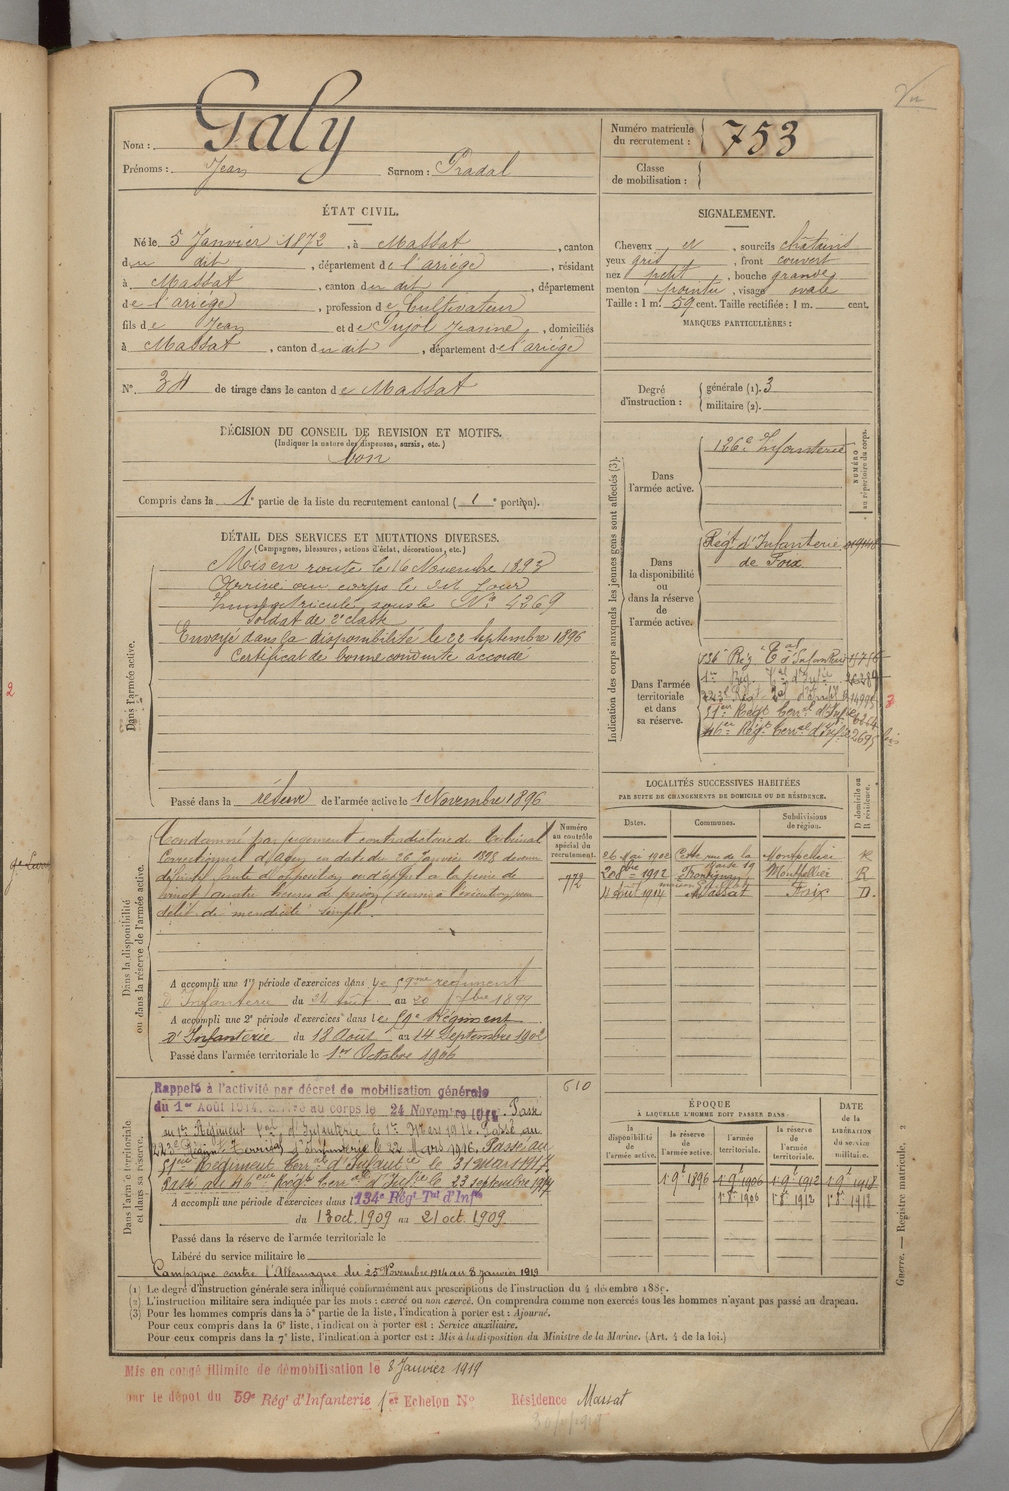 Vu
Nom : Galy
Prénoms : Jean Surnom : Pradal
Numéro matricule du recrutement : 753
Classe de mobilisation :
ÉTAT CIVIL.
Né le 5 Janvier 1872, à Massat, canton
du dit, département de l'ariège, résidant
à Massat, canton du dit, département
de l'ariège, profession de Cultivateur
fils de Jean et de Pujol Jeanne, domiciliés
à Massat, canton du dit, département de l'ariège
N° 34 de tirage dans le canton de Massat
SIGNALEMENT.
Cheveux et, sourcils châtains
yeux gris, front couvert
nez petit, bouche grande
menton pointu, visage ovale
Taille : 1 m. 59 cent. Taille rectifiée : 1 m. cent.
MARQUES PARTICULIÈRES :
Degré d'instruction : générale (1). 3
militaire (2).
DÉCISION DU CONSEIL DE REVISION ET MOTIFS.
(Indiquer la nature des dispenses, sursis, etc.)
bon
Compris dans la 1e partie de la liste du recrutement cantonal ( 1e portion).
DÉTAIL DES SERVICES ET MUTATIONS DIVERSES.
(Campagnes, blessures, actions d'éclat, décorations, etc.)
Dans l'armée active.
Mis en route le 16 Novembre 1893
Arrivé au corps le dit Jour
Immatriculé sous le N° 4269
Soldat de 2e classe
Envoyé dans la disponibilité le 22 Septembre 1896
Certificat de bonne conduite accordé
Passé dans la réserve de l'armée active le 1 Novembre 1896
Indication des corps auxquels les jeunes gens sont affectés (3).
NUMÉRO au répertoire du corps.
Dans l'armée active.
126e Infanterie
Dans la disponibilité ou dans la réserve de l'armée active.
Régt d'Infanterie
de Foix
Dans l'armée territoriale et dans sa réserve.
136e Rég t T al d'Infanterie
1er Rég. Tal d'Infie
223e Régt Tal d'Inf
51em Régt Terral d'Infie
46em Régt Terral d'Infie
Dans la disponibilité ou dans la réserve de l'armée active.
Numéro au contrôle spécial du recrutement.
772
Condamné par jugement contradictoire du Tribunal
Correctionnel d'Agen en date du 26 Janvier 1898 devenu
définitif faute d'opposition ou d'appel à la peine de
vingt quatre heures de prison, sursis à l'exécution, pour
délit de "mendicité" simple.
A accompli une 1re période d'exercices dans le 59me régiment
d'Infanterie du 24 Août au 20 7bre 1899
A accompli une 2e période d'exercices dans le 59e Régiment
d'Infanterie du 18 Août au 14 Septembre 1902
Passé dans l'armée territoriale le 1er Octobre 1906
LOCALITÉS SUCCESSIVES HABITÉES
PAR SUITE DE CHANGEMENTS DE DOMICILE OU DE RÉSIDENCE.
Dates. Communes. Subdivisions de région. D domicile ou R résidence.
26 Mai 1902 Cette rue de la Montpellier R
20 8bre 1912 Frontignan Montpellier R
4 Avril 1914 Massat Foix D.
Dans l'armée territoriale et dans sa réserve.
610
Rappelé à l'activité par décret de mobilisation générale
du 1er Août 1914. arrivé au corps le 24 Novembre 1914. Passé
au 1er Régiment Tal d'Infanterie le 1er Mars 1916. Passé au
223e Régint Territal d'Infanterie le 22 Mars 1916. Passé au
51em Régiment Terral d'Infantie le 31 mars 1917.
Passé au 46em Régt Terral d'Infie le 23 septembre 1917
A accompli une période d'exercices dans l 134e Régt Tal d'Infie
du 13 oct. 1909 au 21 oct. 1909.
Passé dans la réserve de l'armée territoriale le
Libéré du service militaire le
Campagne contre l'Allemagne du 25 Novembre 1914 au 8 janvier 1919
ÉPOQUE
À LAQUELLE L'HOMME DOIT PASSER DANS
la disponibilité de l'armée active. la réserve de l'armée active. l'armée territoriale. la réserve de l'armée territoriale.
DATE de la LIBÉRATION du service militaire.
1er 9t 1896 1er 9t 1906 1er 9t 1912 1er 9t 1918
1er 8t 1906 1er 8t 1912 1er 8t 1918
Guerre. — Registre matricule. 2
(1) Le degré d'instruction générale sera indiqué conformément aux prescriptions de l'instruction du 4 décembre 1889.
(2) L'instruction militaire sera indiquée par les mots : exercé ou non exercé. On comprendra comme non exercés tous les hommes n'ayant pas passé au drapeau.
(3) Pour les hommes compris dans la 5e partie de la liste, l'indication à porter est : Ajourné.
Pour ceux compris dans la 6e liste, l'indication à porter est : Service auxiliaire.
Pour ceux compris dans la 7e liste, l'indication à porter est : Mis à la disposition du Ministre de la Marine. (Art. 4 de la loi.)
Mis en congé illimité de démobilisation le 8 Janvier 1919
par le dépôt du 59e Régt d'Infanterie 1er Echelon N° Résidence Massat